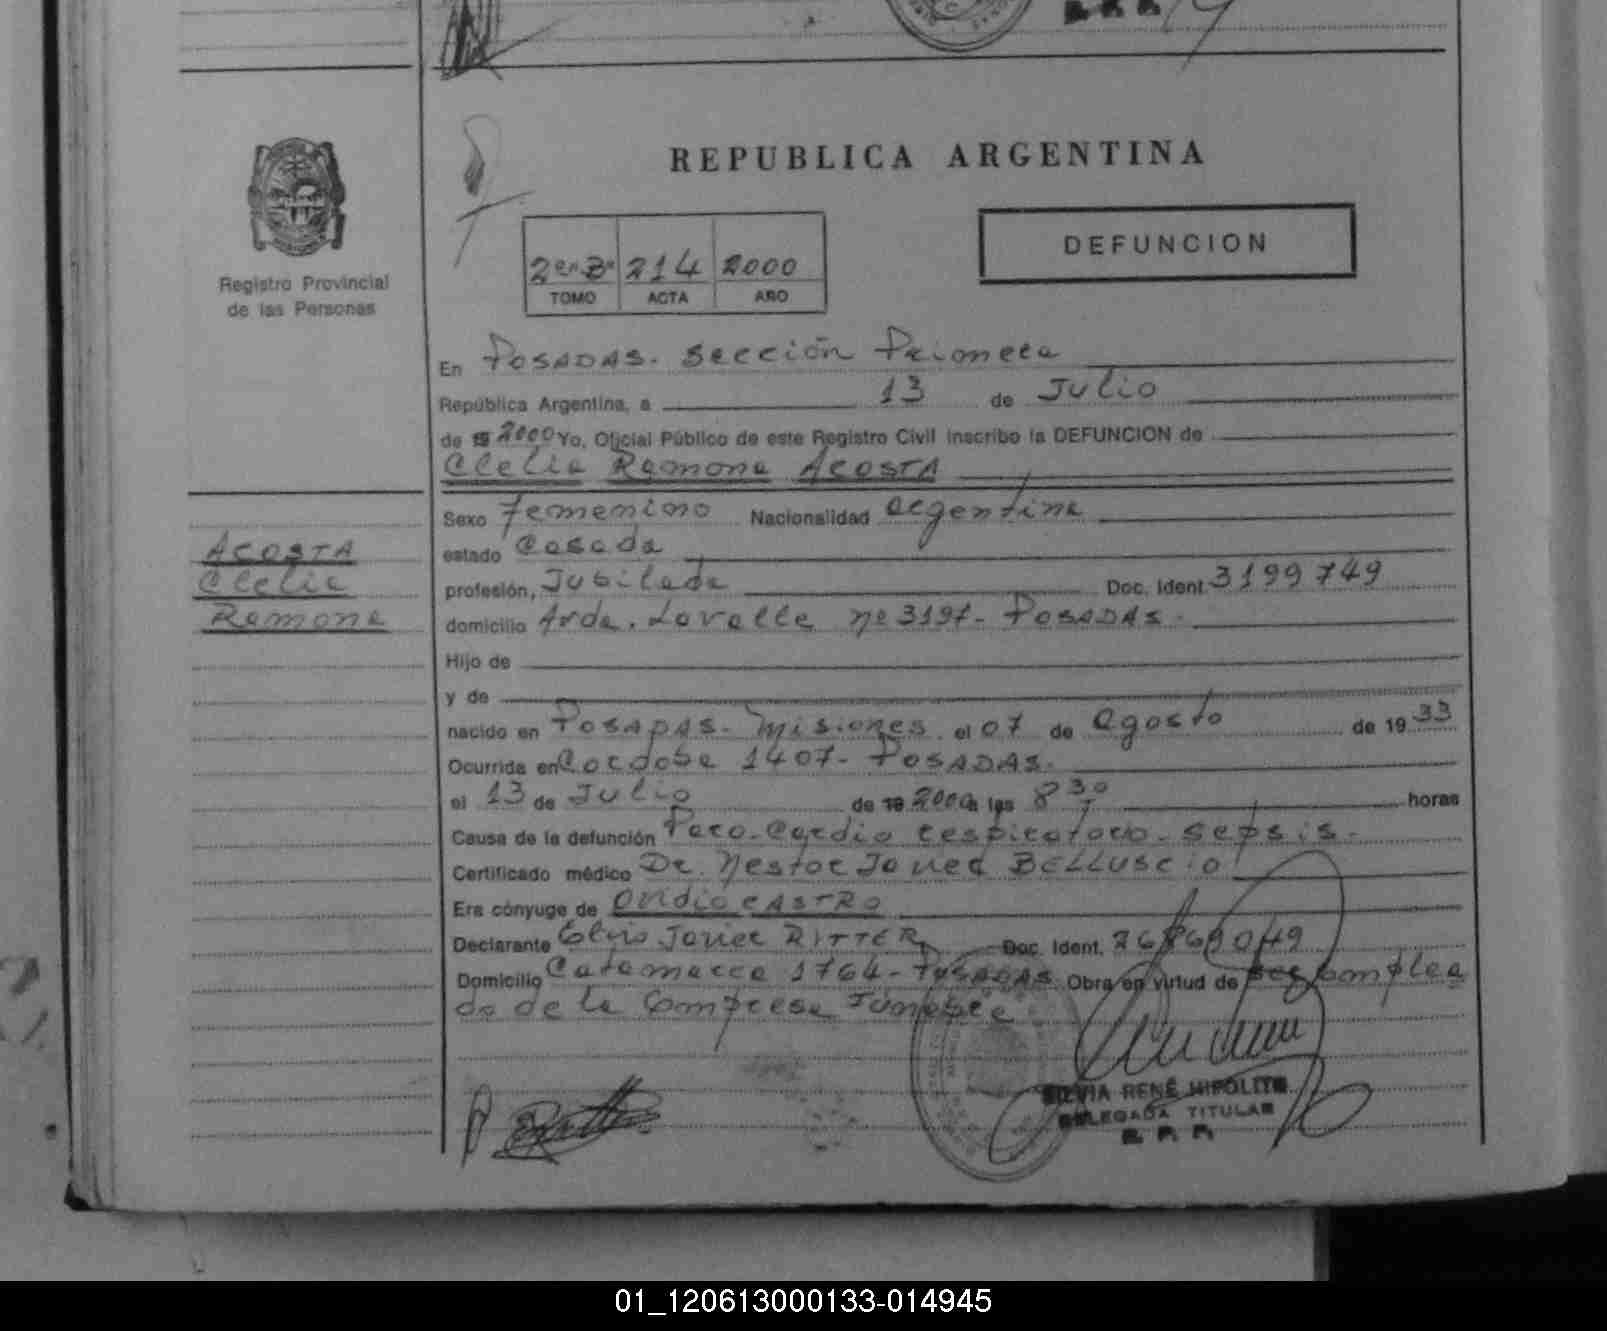 REPUBLICA ARGENTINA
DEFUNCION
2en Bº 214 2000
TOMO ACTA AÑO
Registro Provincial
de las Personas
En POSADAS. Sección Primera
República Argentina, a 13 de Julio
de 19 2000 Yo, Oficial Público de este Registro Civil inscribo la DEFUNCION de
Clelia Ramona ACOSTA
ACOSTA
Clelia
Ramona
Sexo Femenino Nacionalidad argentina
estado Casada
profesión, Jubilada Doc. Ident. 3199749
domicilio Avda. Lavalle nº 3197- POSADAS.
Hijo de
y de
nacido en POSADAS- Misiones. el 07 de Agosto de 1933
Ocurrida en Cordoba 1407- POSADAS.
el 13 de Julio de 19 2000 a las 8 30 horas
Causa de la defunción Paro-Cardio respiratorio- sepsis.
Certificado médico Dr. Nestor Javier BELLUSCIO
Era cónyuge de Ovidio CASTRO
Declarante Elvio Javier RITTER Doc. Ident.
Domicilio Catamarca 1764- POSADAS Obra en virtud de ser emplea
do de la Empresa Fúnebre
SILVIA RENÉ HIPÓLITO
DELEGADA TITULAR
R. P. P.
01_120613000133-014945